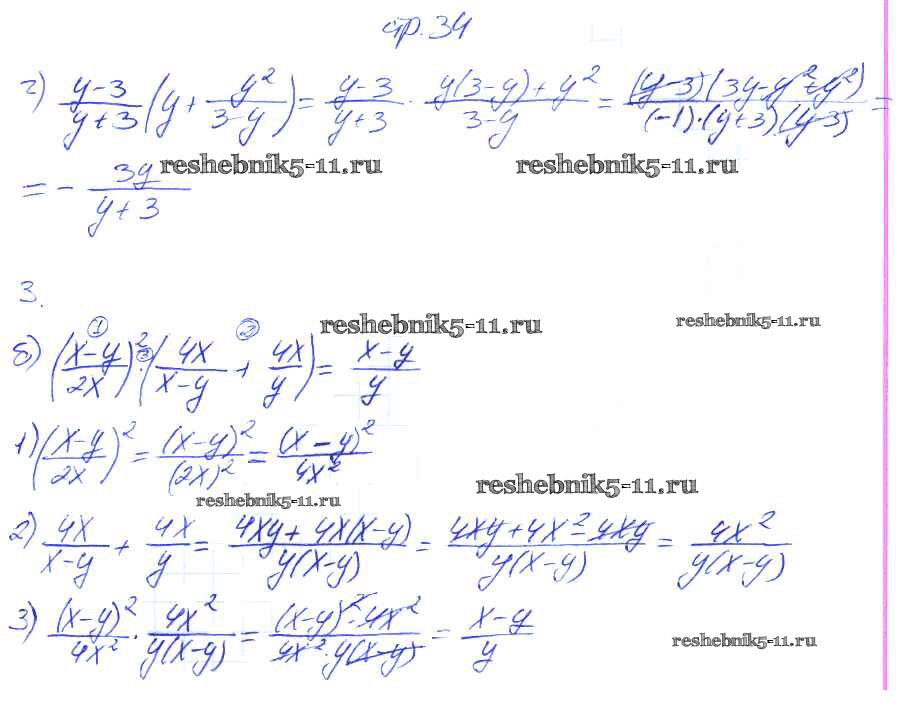 стр. 34
г) \frac{y-3}{y+3}(y + \frac{y^2}{3-y}) = \frac{y-3}{y+3} · \frac{y(3-y)+y^2}{3-y} = \frac{(y-3)(3y-y^2+y^2)}{(-1)·(y+3)(y-3)} =
reshebnik5-11.ru reshebnik5-11.ru
= - \frac{3y}{y+3}
3.
reshebnik5-11.ru reshebnik5-11.ru
① ②
б) (\frac{x-y}{2x})^2 ③ (\frac{4x}{x-y} + \frac{4x}{y}) = \frac{x-y}{y}
1) (\frac{x-y}{2x})^2 = \frac{(x-y)^2}{(2x)^2} = \frac{(x-y)^2}{4x^2}
reshebnik5-11.ru reshebnik5-11.ru
2) \frac{4x}{x-y} + \frac{4x}{y} = \frac{4xy+4x(x-y)}{y(x-y)} = \frac{4xy+4x^2-4xy}{y(x-y)} = \frac{4x^2}{y(x-y)}
3) \frac{(x-y)^2}{4x^2} · \frac{4x^2}{y(x-y)} = \frac{(x-y)^2·4x^2}{4x^2·y(x-y)} = \frac{x-y}{y}
reshebnik5-11.ru